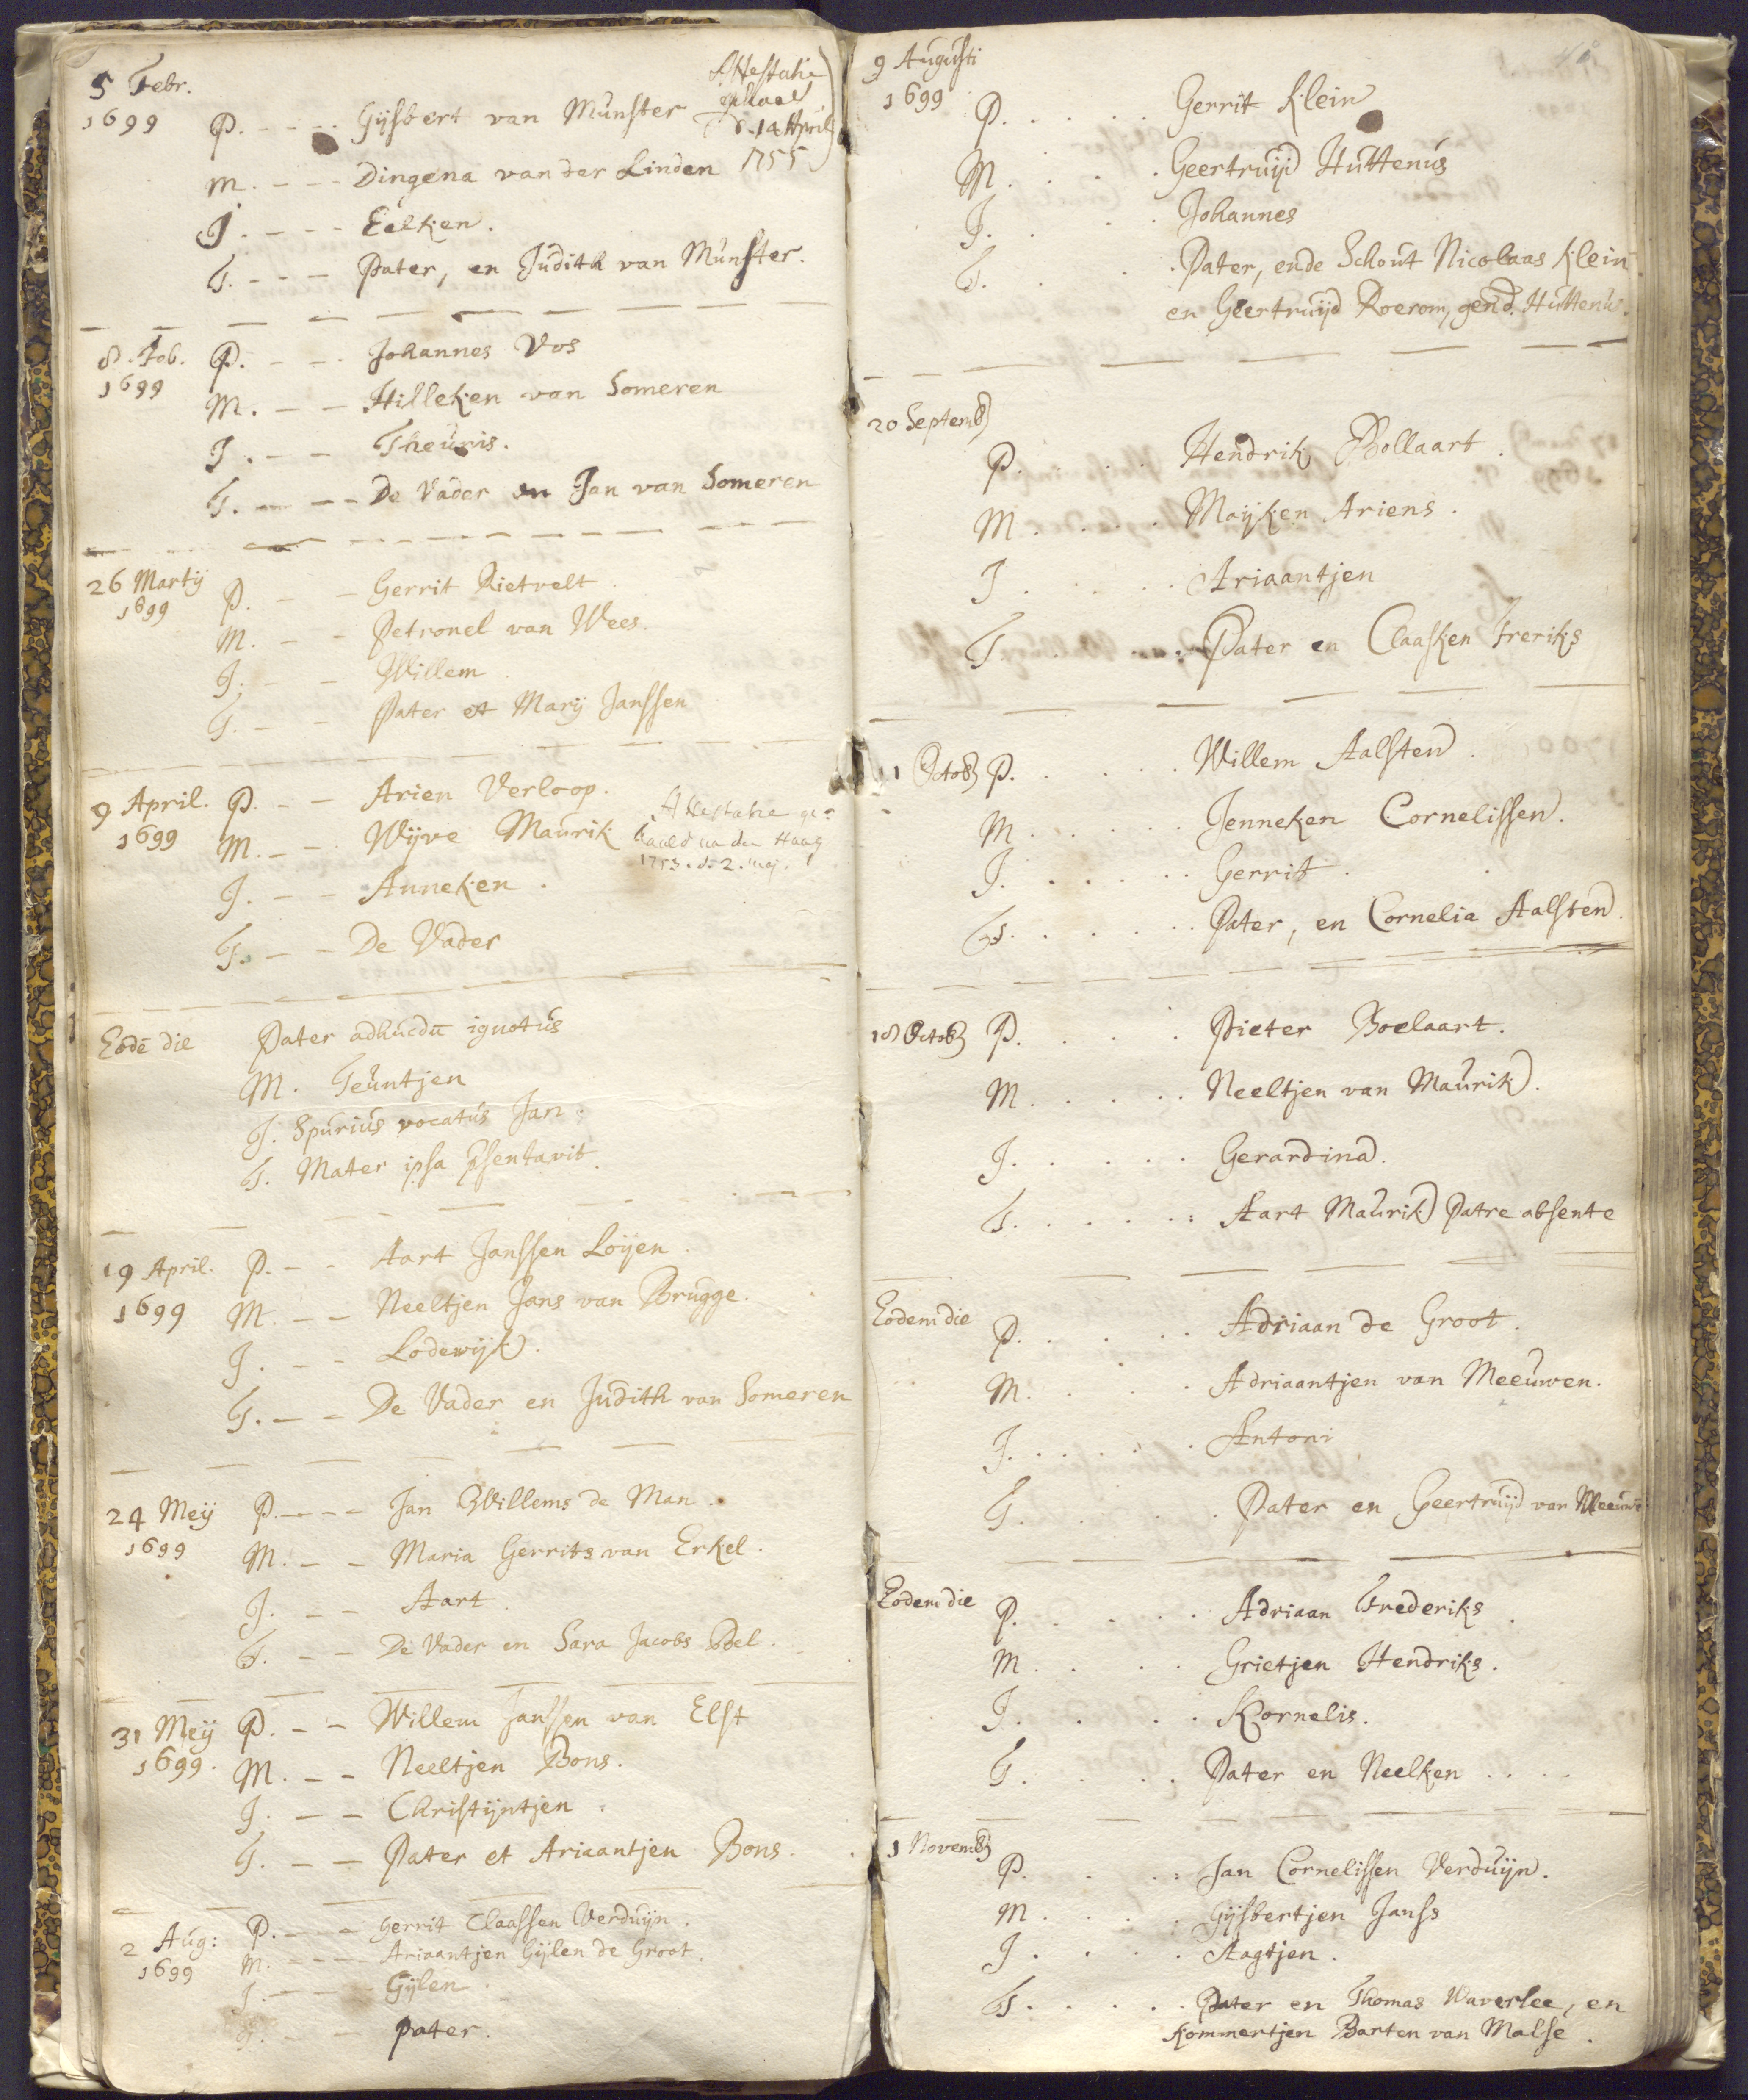 5 Febr.
1699 P. - - - Gijsbert van Munster
Attestatie
gehaalt
d. 14 April
1755
M. - - - Dingena van der Linden
J. - - - Eelken.
T. - - - Pater, en Judith van Munster.
8. Feb. P. - - - Johannes Vos
1699 M. - - Hilleken van Someren
J. - - Theunis.
T. - - - De Vader en Jan van Someren
26 Martij P. - - Gerrit Rietvelt
1699
M. - - Petronel van Wees.
J. - - Willem
T. - - Pater et Marij Janssen
9 April. P. - - Arien Verloop.
1699 M. - - Wijve Maurik
Attestatie ge-
haald na den Haag
1753. d. 2. maj.
J. - - Anneken.
T. - - De Vader
Eodē die Pater adhucdū ignotus
M. Teuntjen
J. Spurius vocatus Jan.
T. Mater ipsa psentavit.
19 April. P. - - Aart Janssen Loijen.
1699 M. - - Neeltjen Jans van Brugge.
J. - - Lodewijk.
T. - - De Vader en Judith van Someren
24 Meij P. - - - Jan Willems de Man.
1699 M. - - Maria Gerrits van Erkel.
J. - - Aart.
T. - - De Vader en Sara Jacobs Bel.
31 Meij P. - - Willem Janssen van Elst
1699. M. - - Neeltjen Bons.
J. - - Christijntjen.
T. - - Pater et Ariaantjen Bons.
2 Aug: P. - - - Gerrit Claassen Verduijn.
1699 M. - - - Ariaantjen Gijlen de Groot.
J. - - - Gijlen.
T. - - - Pater.
9 Augusti
1699 P. . . . . Gerrit Klein
M. . . . Geertruijd Huttenus
J. . . . Johannes
T. . . . Pater, ende Schout Nicolaas Klein
en Geertruijd Roerom, gend. Huttenu.
20 Septemb
P. . . . Hendrik Bollaart.
M. . . . Maijken Ariens.
J. . . . Ariaantjen
T. . . . Pater en Claasken Freriks
1 Octob P. . . . . Willem Aalsten.
M. . . . . Jenneken Cornelissen.
J. . . . . Gerrit.
T. . . . . Pater, en Cornelia Aalsten.
18 Octob P. . . . Pieter Boelaart.
M. . . . . Neeltjen van Maurik.
J. . . . . Gerardina.
T. . . . . Aart Maurik Patre absente
Eodem die P. . . . . Adriaan de Groot.
M. . . . Adriaantjen van Meeuwen.
J. . . . . Antoni
T. . . . . Pater en Geertruijd van Meeuwē
Eodem die P. . . . . Adriaan Frederiks.
M. . . . Grietjen Hendriks.
J. . . . Kornelis.
T. . . . Pater en Neelken . . . .
1 Novemb
P. . . . Jan Cornelissen Verduijn.
M. . . . Gijsbertjen Janss
J. . . . Aagtjen.
T. . . . . Pater en Thomas Waverlee, en
Kommertjen Barten van Malse.